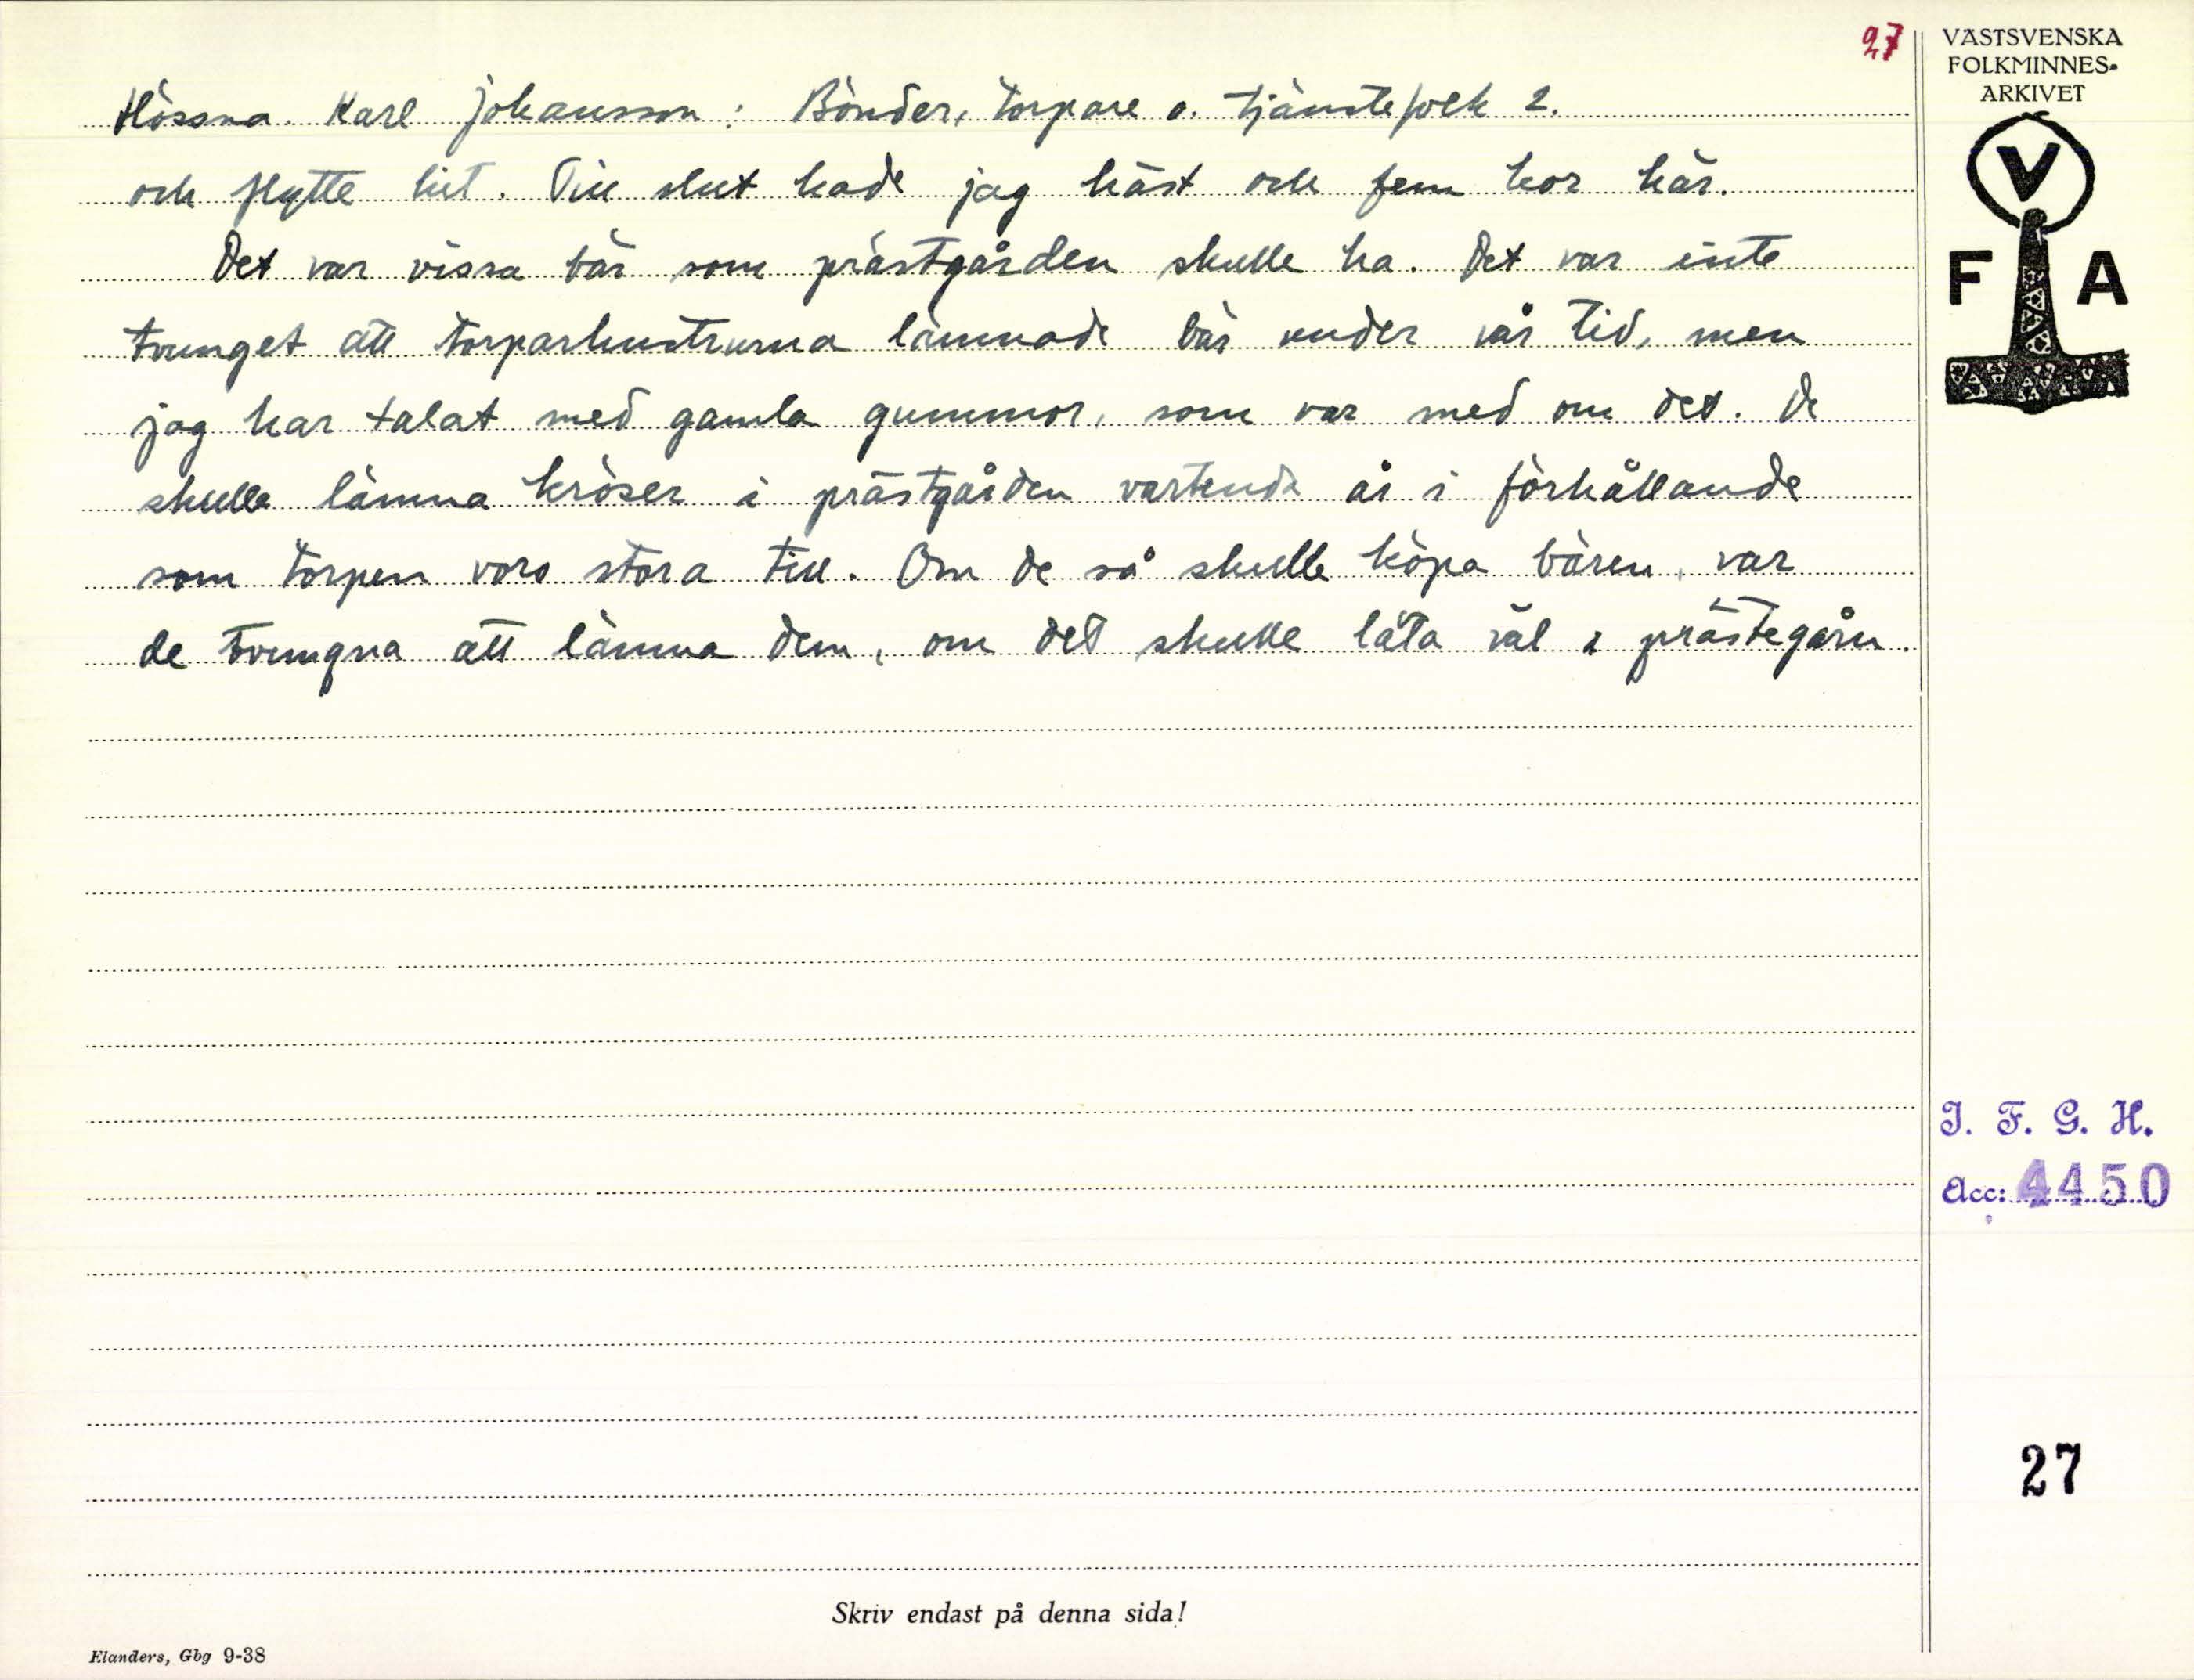 27
Hössna. Karl Johansson: Bönder, torpare o. tjänstefolk 2.
och flytte hit. Till slut hade jag häst och fem kor här.
Det var vissa bär som prästgården skulle ha. Det var inte
tvunget att torparhustrurna lämnade bär under vår tid, men
jag har talat med gamla gummor, som var med om det. De
skulle lämna kröser i prästgården vartenda år i förhållande
som torpen voro stora till. Om de så skulle köpa bären, var
de tvungna att lämna dem, om det skulle låta väl i prästegårn.
VÄSTSVENSKA
FOLKMINNES-
ARKIVET
V
F A
I. F. G. H.
Acc: 4450
27
Skriv endast på denna sida!
Elanders, Gbg 9-38